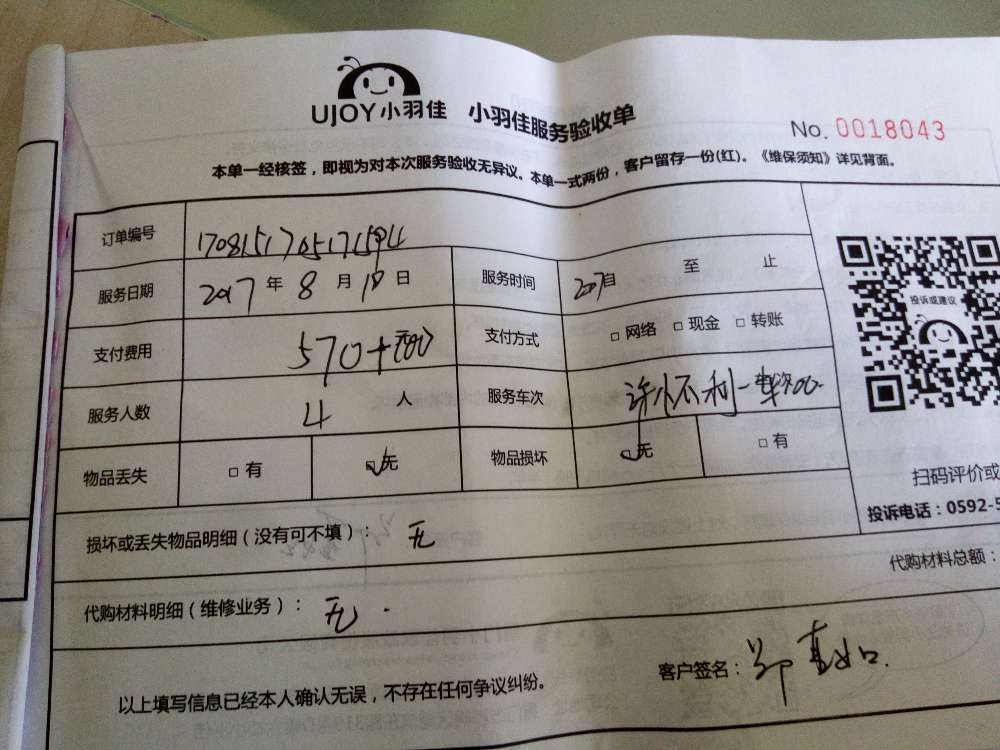 UJOY小羽佳 小羽佳服务验收单
No. 0018043
本单一经核签，即视为对本次服务验收无异议。本单一式两份，客户留存一份(红)。《维保须知》详见背面。
订单编号
服务日期 2017 年 8 月 18 日 服务时间 自 至 止
投诉或建议
支付费用 570+ 支付方式 □ 网络 □ 现金 □ 转账
服务人数 4 人 服务车次
物品丢失 □ 有 □ 无 物品损坏 □ 无 □ 有
扫码评价或
投诉电话：0592-5
损坏或丢失物品明细（没有可不填）： 无
代购材料总额：
代购材料明细（维修业务）： 无.
客户签名：
以上填写信息已经本人确认无误，不存在任何争议纠纷。